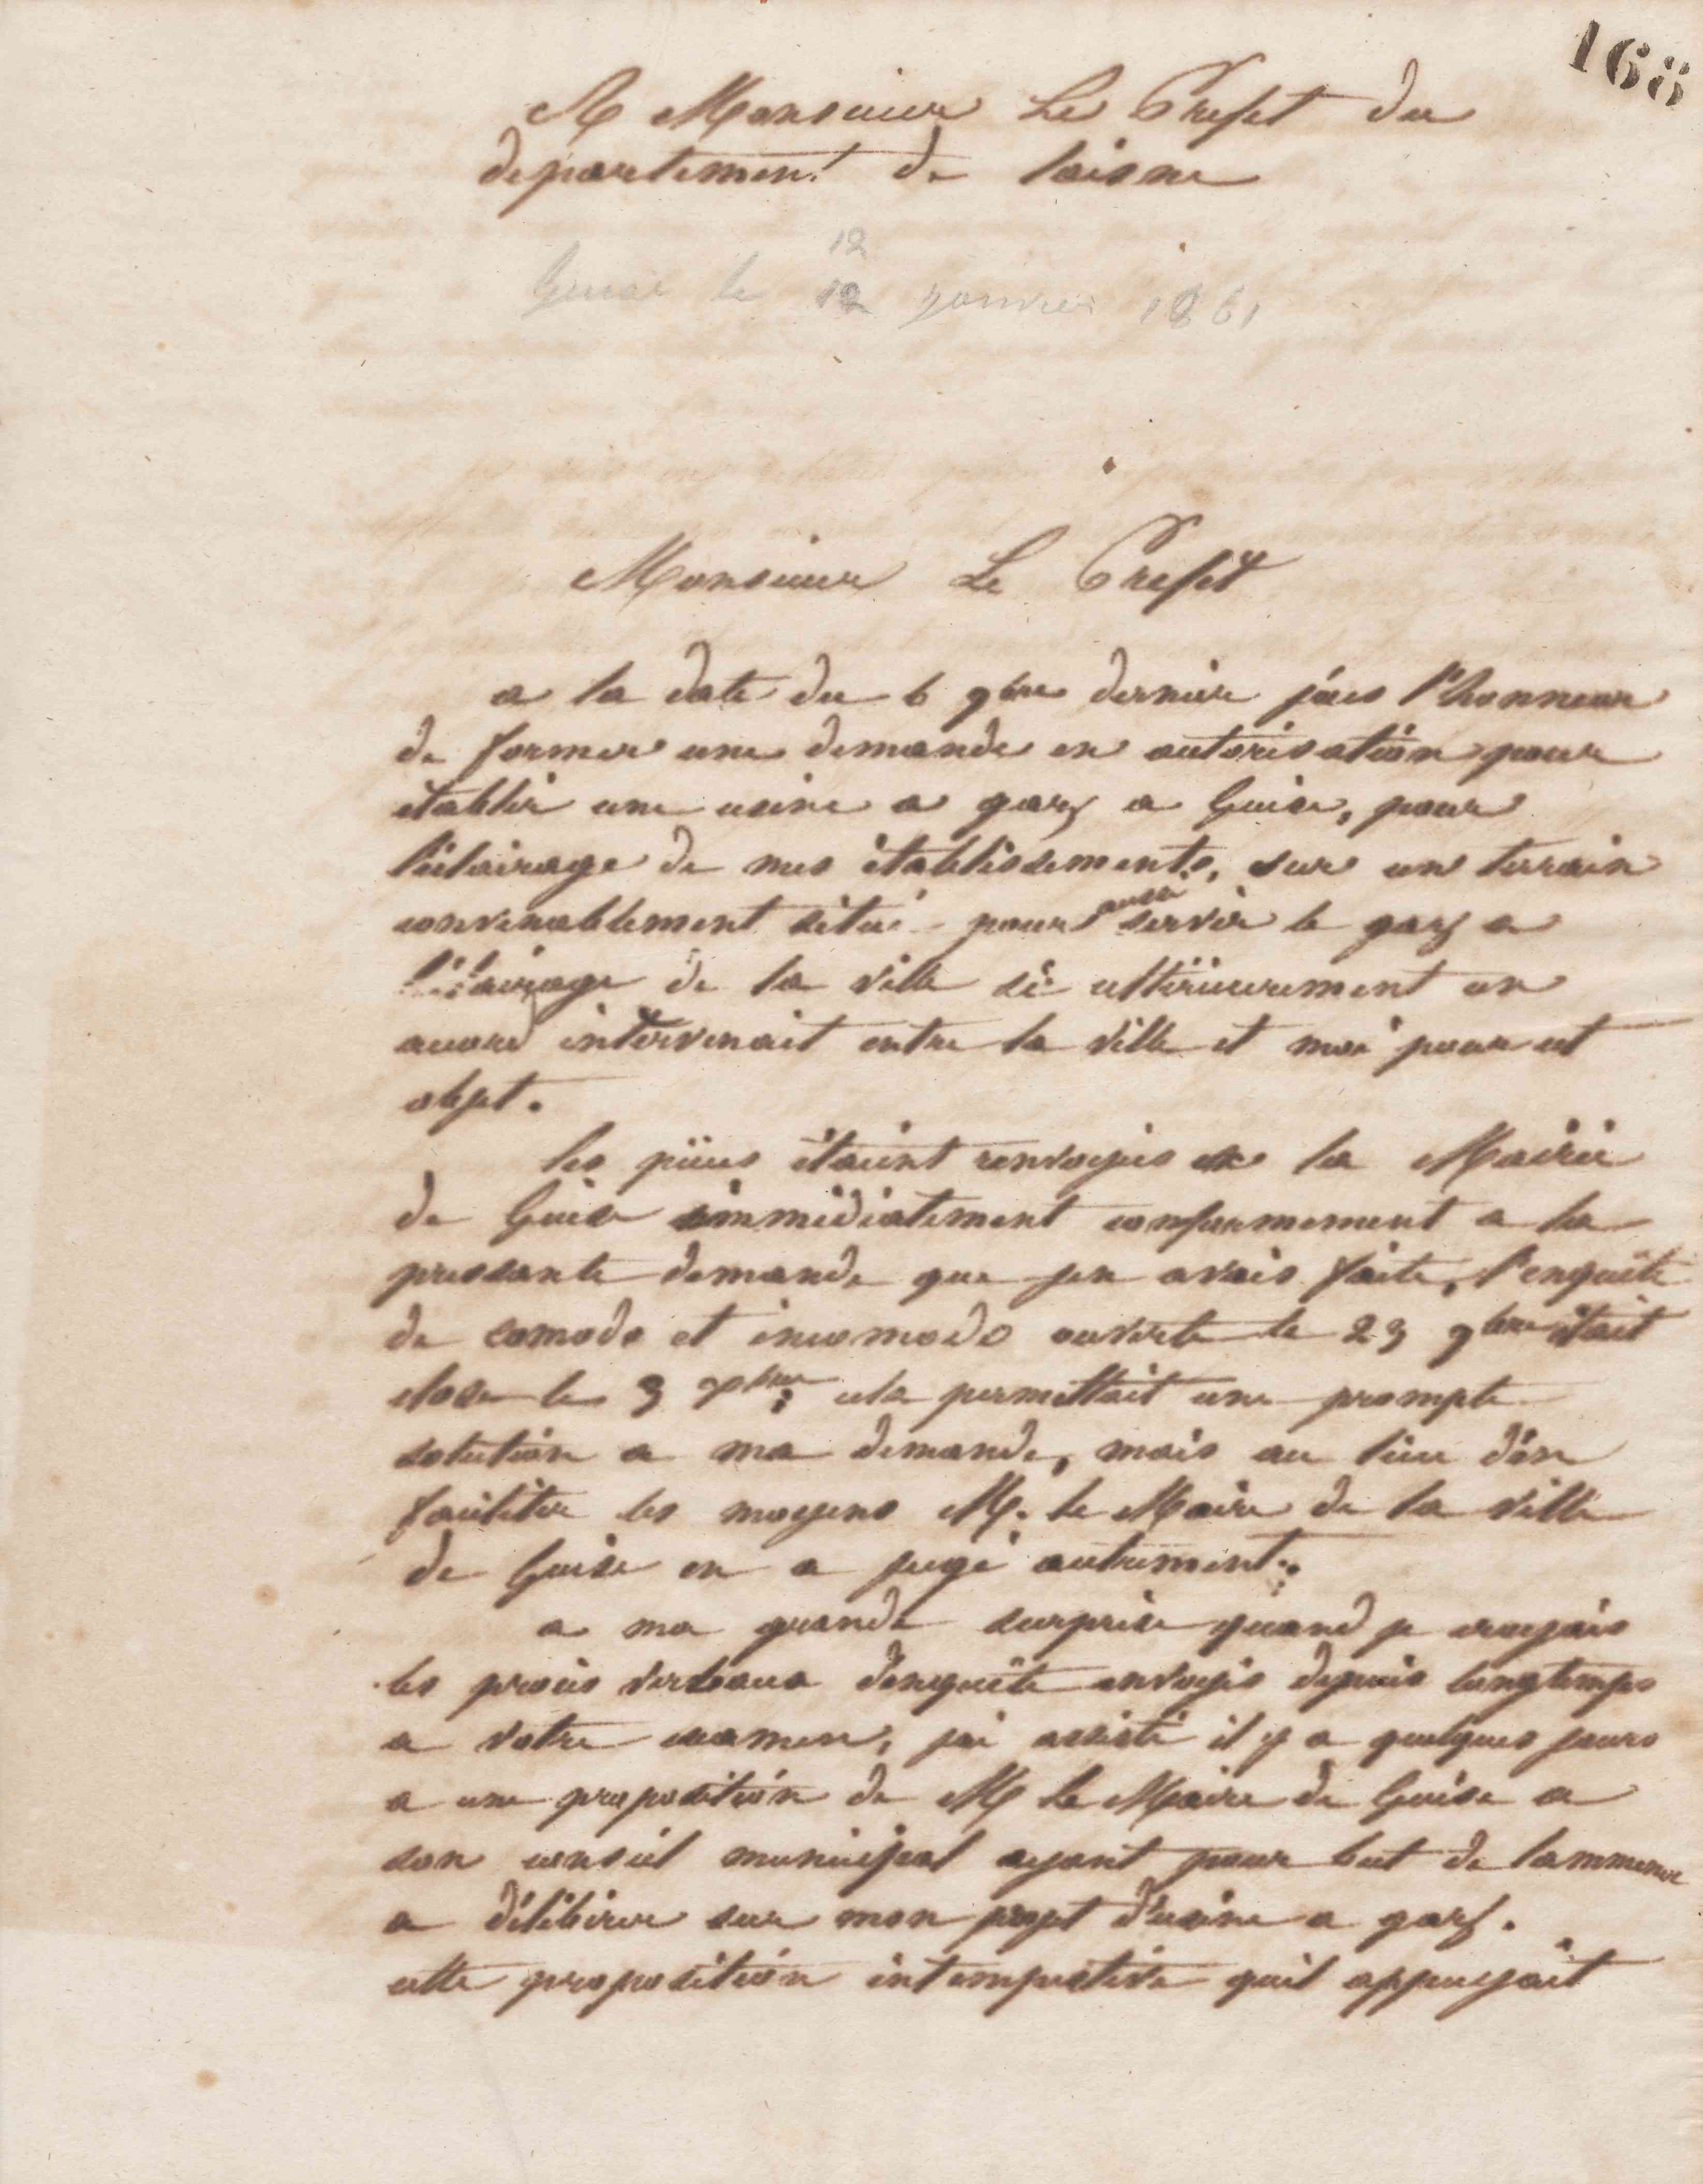 168
A Monsieur Le Prefet du
departement de laisne
12
Guise le 12 janvier 1861
Monsieur Le Prefet
a la date du 6 9bre dernier j'eus l'honneur
de former une demande en autorisation pour
établir une usine a gaz a Guise, pour
l'éclairage de mes établissements, sur un terrain
convenablement situé pour aussi servir le gaz a
l'éclairage de la ville si ultérieurement un
accord intervenait entre la ville et moi pour cet
objet.
les pièces étaient renvoyées a la Mairie
de Guise immédiatement conformement a la
pressante demande que j'en avais faite, l'enquête
de comodo et incomodo ouverte le 23 9bre était
close le 3 Xbre; cela permettait une prompte
solution a ma demande, mais au lieu d'en
faciliter les moyens M. le Maire de la ville
de Guise en a jugé autrement.
a ma grande surprise quand je croyais
les procès verbaux d'enquête envoyés depuis longtemps
a votre examen, j'ai assisté il y a quelques jours
a une proposition de M le Maire de Guise a
son conseil municipal ayant pour but de lammener
a délibérer sur mon projet d'usine a gaz.
cette proposition intempestive quil appuyait